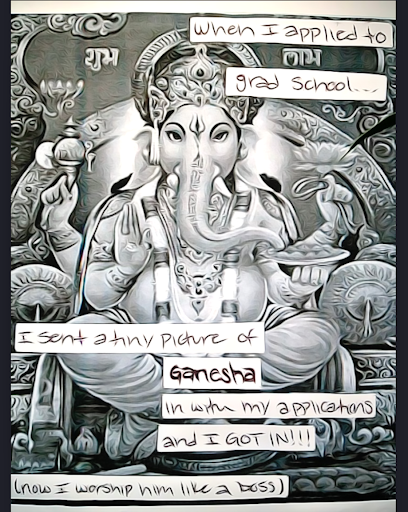 when I applied to
शुभ लाभ
grad school...
I sent a tiny picture of
Ganesha
in with my applications
and I GOT IN!!!
(now I worship him like a boss)